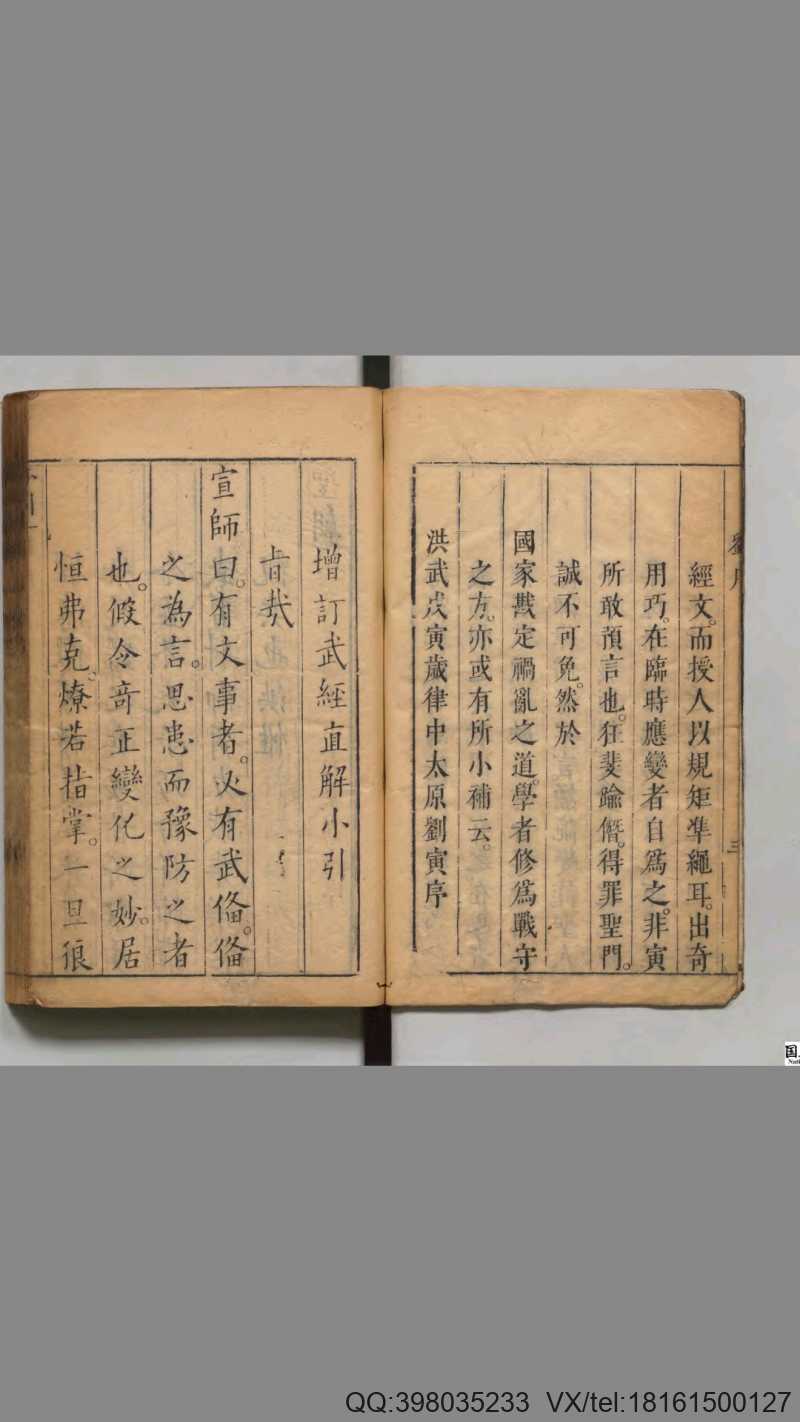 經文。而授人以規矩準繩耳。出奇
用巧。在臨時應變者自爲之。非寅
所敢預言也。狂斐踰僭。得罪聖門。
誠不可免。然於
國家戡定禍亂之道。學者修爲戰守
之方。亦或有所小補云。
洪武戊寅歲律中太原劉寅序
三
增訂武經直解小引
旨哉
宣師曰。有文事者。必有武偹。偹
之為言。思患而豫防之者
也。假令竒正變化之妙。居
恒弗克燎若指掌。一旦很
QQ:398035233 VX/tel:18161500127